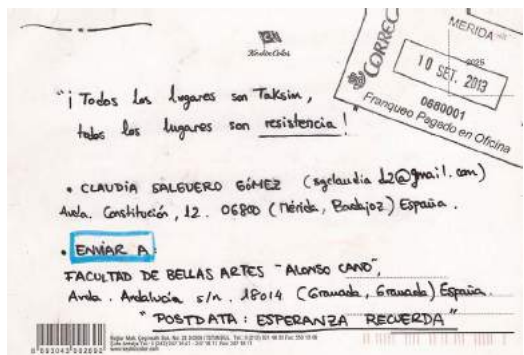 Keskin Color
CORREOS
MERIDA
10 SET. 2013
0680001
Franqueo Pagado en Oficina
"¡Todos los lugares son Taksim,
todos los lugares son resistencia!"
• CLAUDIA SALGUERO GÓMEZ (sgclaudia12@gmail.com)
Avda. Constitución, 12. 06800 (Mérida, Badajoz) España.
• ENVIAR A:
FACULTAD DE BELLAS ARTES "ALONSO CANO",
Avda. Andalucía s/n. 18014 (Granada, Granada) España.
"POSTDATA: ESPERANZA RECUERDA"